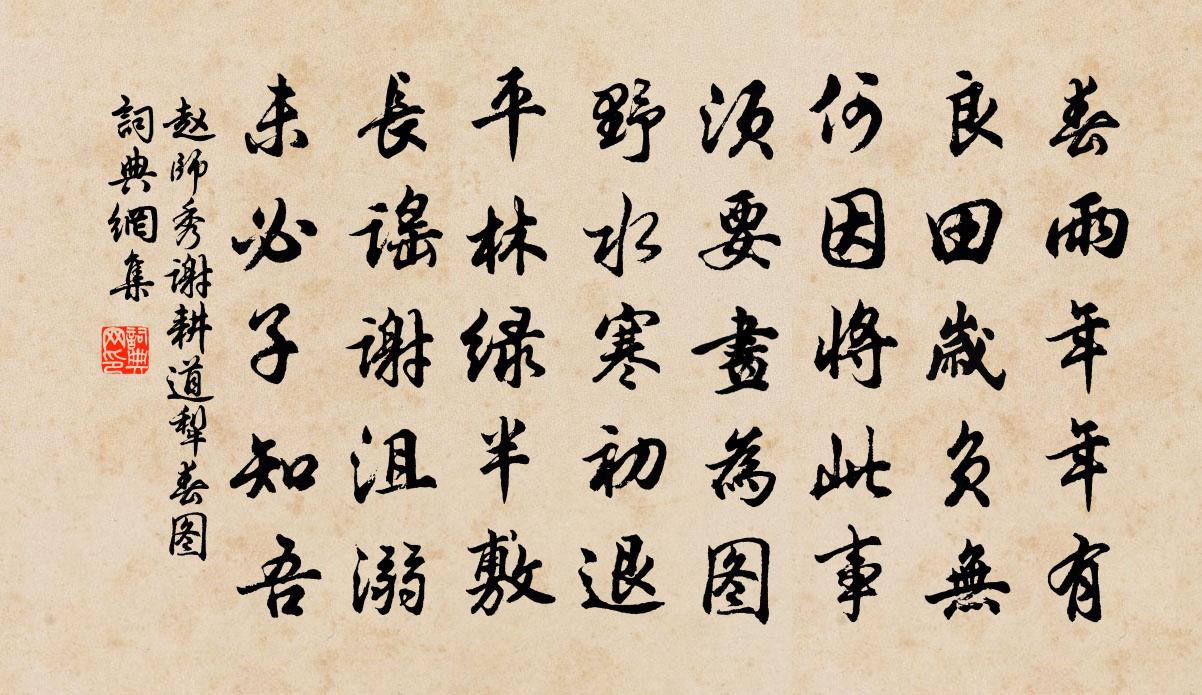 春雨年年有
良田歲負無
何因將此事
須要畫為图
野水寒初退
平林緑半敷
長謠謝沮溺
未必子知吾
赵師秀謝耕道犁春图
詞典網集
詞典网印